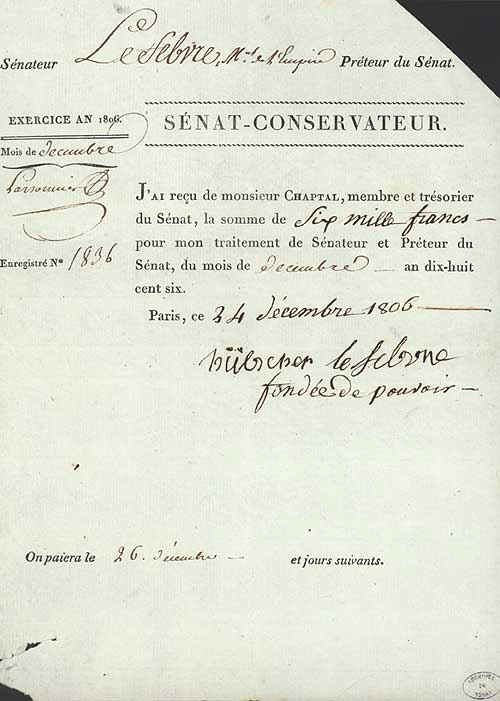 Sénateur Le Febvre, Mal. de l'Empire Préteur du Sénat.
EXERCICE AN 1806.
SÉNAT-CONSERVATEUR.
Mois de decembre
J'AI reçu de monsieur CHAPTAL, membre et trésorier
du Sénat, la somme de Six mille francs
pour mon traitement de Sénateur et Préteur du
Enregistré No. 1836
Sénat, du mois de decembre an dix-huit
cent six.
Paris, ce 24 décembre 1806
hübscher lefebvre
fondée de pouvoir
On paiera le 26. décembre et jours suivants.